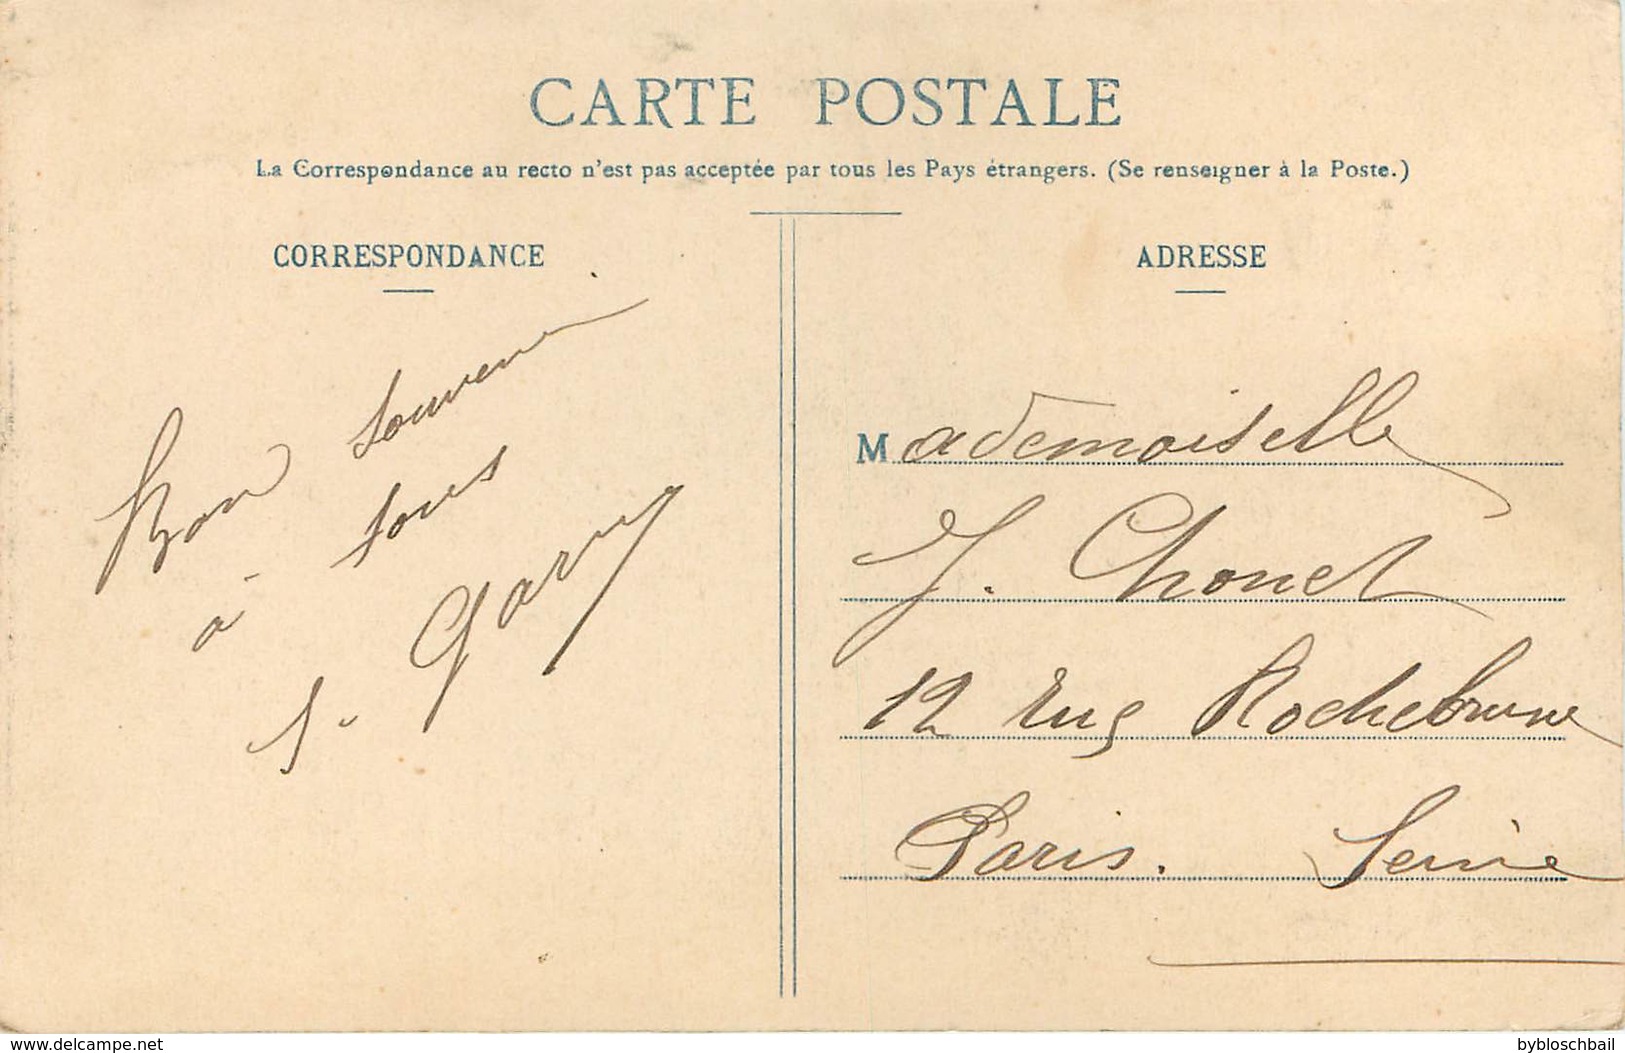 CARTE POSTALE
La Correspondance au recto n'est pas acceptée par tous les Pays étrangers. (Se renseigner à la Poste.)
CORRESPONDANCE
Bon souvenir
à tous
ADRESSE
Mademoiselle
J. Chonet
12 rue Rochebrune
Paris. Seine
www.delcampe.net
bybloschbail